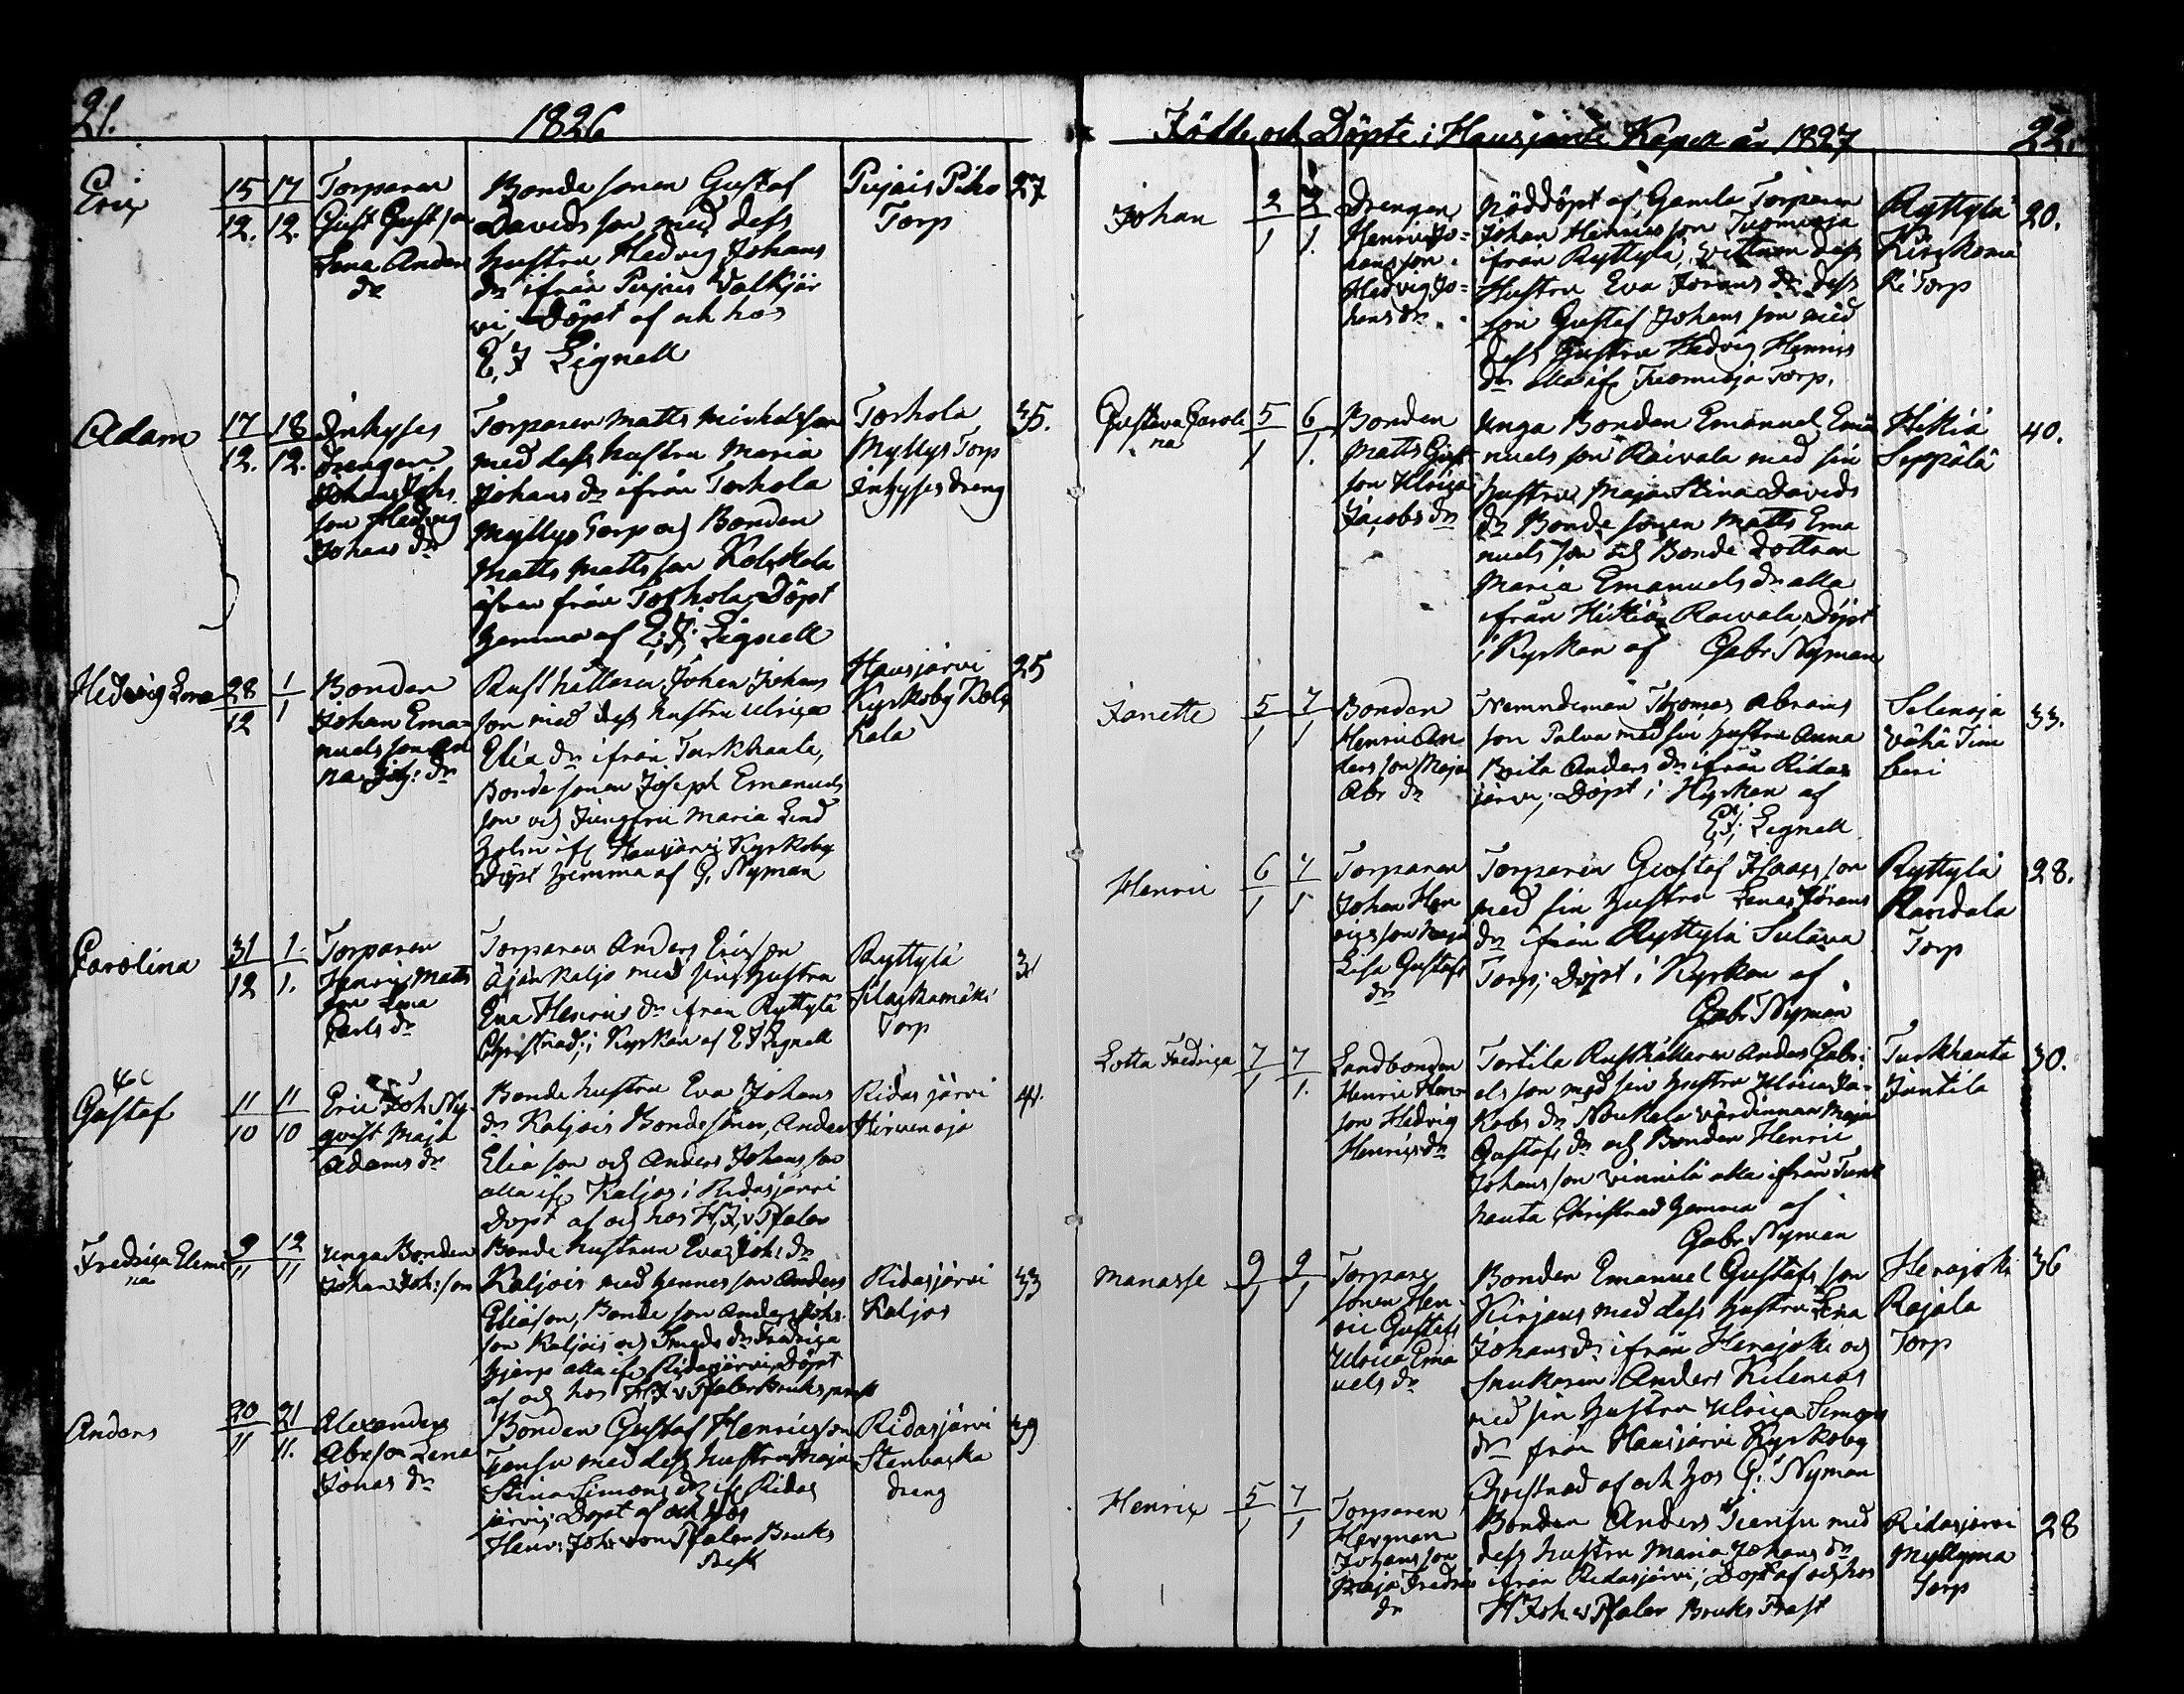 21.
1826
Eric
15 17
12. 12.
Torparen
Gust Gust son
Lena Anders
dr
Bonde sonen Gustaf
Davids son med dess
hustru Hedvig Johans
dr ifrån Pujais Valkjär
vi, Döpt af och hos
E. J Lignell
Pujais Piho
Torp
27
Adam
17 18
12. 12.
Inhyses
drengen
Johan Johs
son Hedvig
Johans dr
Torparen Matts Michelsson
med dess hustru Maria
Johans dr ifrån Torhola
Myllys Torp och Bonden
Matts Matts son Kolskala
äfven från Torhola, Döpt
hemma af E. J. Lignell
Torhola
Myllys Torp
Inhyses dreng
35.
Hedvig Lena
28 1
12 1
Bonden
Johan Ema-
nuels son An
na Joh: dr
Rusthållaren Johan Johans
son med dess hustru Ulrica
Elia dr ifrån Turkhauta,
Bonde sonen Joseph Emanuels
son och Jungfru Maria Lind
holm if Hausjärvi Kyrkoby
Döpt hemma af G. Nyman
Hausjärvi
Kyrkoby Kols
Kala
25
Carolina
31 1.
12 1.
Torparen
Henric Matts
son Lena
Carls dr
Torparen Anders Ericson
Äjän Kaljo med sin hustru
Eva Henrics dr ifrån Ryttylä
Christnad i Kyrkan af E J Lignell
Ryttylä
Silaskamäki
Torp
31
Gustaf
11 11
10 10
Eric Joh Ny-
qvist Maja
Adams dr
Bonde hustru Eva Johans
dr Kaljois Bondesöner, Anders
Elia son och Anders Johans son
alla if Kaljos i Ridasjärvi
Döpt af och hos H. J. v Pfaler
Ridasjärvi
Hirvenoja
41.
Fredrica Elemi
na
9 12
11 11
Unga Bonden
Johan Joh: son
Bonde hustrun Eva Joh: dr
Kaljois med hennes son Anders
Eliason, Bonde son Anders Johs
son Kaljois och Smeds dr Fredrica
Hjerp alla if Ridasjärvi, Döpt
af och hos H J v Pfaler Bruks prest
Ridasjärvi
Kaljos
33
Anders
20 21
11 11.
Alexander
Abrson Lena
Jonas dr
Bonden Gustaf Henricson
Tensu med dess hustru Maja
Stina Simons dr if Ridas
järvi, Döpt af och hos
Henr: Joh: von Pfaler Bruks
Prest
Ridasjärvi
Stenbacka
dreng
39
Födde och Döpte i Hausjärvi Kapell år 1827
22.
Johan
2 3
1 1.
Drengen
Henric Jo-
hans son
Hedvig Jo-
hans dr
Nöddöpt af Gamla Torparen
Johan Henrics son Tuomioja
ifrån Ryttylä, vittnen dess
Hustru Eva Jörans dr dess
son Gustaf Johans son med
dess hustru Hedvig Henrics
dr alla if Tuomioja Torp.
Ryttylä
Kiviskomä
ki Torp
20.
Gustava Caroli
na
5 6
1 1.
Bonden
Matts Gust
son Ulrica
Jacobs dr
Unga Bonden Emanuel Ema
nuels son Raivala med sin
hustru Maja Stina Davids
dr Bonde sonen Matts Ema
nuels son och Bonde dottren
Maria Emanuels dr alla
ifrån Hikiä Raivala, Döpt
i Kyrkan af Gabr Nyman
Hikiä
Seppälä
40.
Janette
5 7
1 1
Bonden
Henric An
ders son Maja
Abr dr
Nemndeman Thomas Abrams
son Palva med sin hustru Anna
Brita Anders dr ifrån Ridas
järvi, Döpt i Kyrkan af
E. J. Lignell
Selenoja
Vähä Tim
beri
33.
Henric
6 7
1 1
Torparen
Johan Hen
rics son Maja
Lisa Gustafs
dr
Torparen Gustaf Claas son
med sin hustru Lena Jörans
dr ifrån Ryttylä Sulava
Torp, Döpt i Kyrkan af
Gabr Nyman
Ryttylä
Randala
Torp
28.
Lotta Fredrica
7 7
1 1.
Landbonden
Henric Henr
son Hedvig
Henrics dr
Tortila Rusthållaren Anders Gabri
els son med sin hustru Ulrica Ja-
kobs dr Noukala värdinnan Maja
Gustafs dr och Bonden Henric
Johans son Vinnilä alla ifrån Turk
hauta Christnad hemma af
Gabr Nyman
Turkhauta
Juntila
30.
Manasse
9 9
1 1
Torpare
sonen Hen-
ric Gustafs
Ulrica Ema
uels dr
Bonden Emanuel Gustafs son
Kirjaus med dess hustru Lena
Johans dr ifrån Herajoki och
Snickaren Anders Kilenius
med sin hustru Ulrica Simons
dr från Hausjärvi Kyrkoby
Christnad af och hos G. Nyman
Herajoki
Rajala
Torp
36
Henric
5 7
1 1
Torparen
Herman
Johans son
Maja Fredrics
dr
Bonden Anders Tiensu med
dess hustru Maria Johans dr
ifrån Ridasjärvi, Döpt af och hos
H Joh v Pfaler Bruks Prest
Ridasjärvi
Myllymä
Torp
28